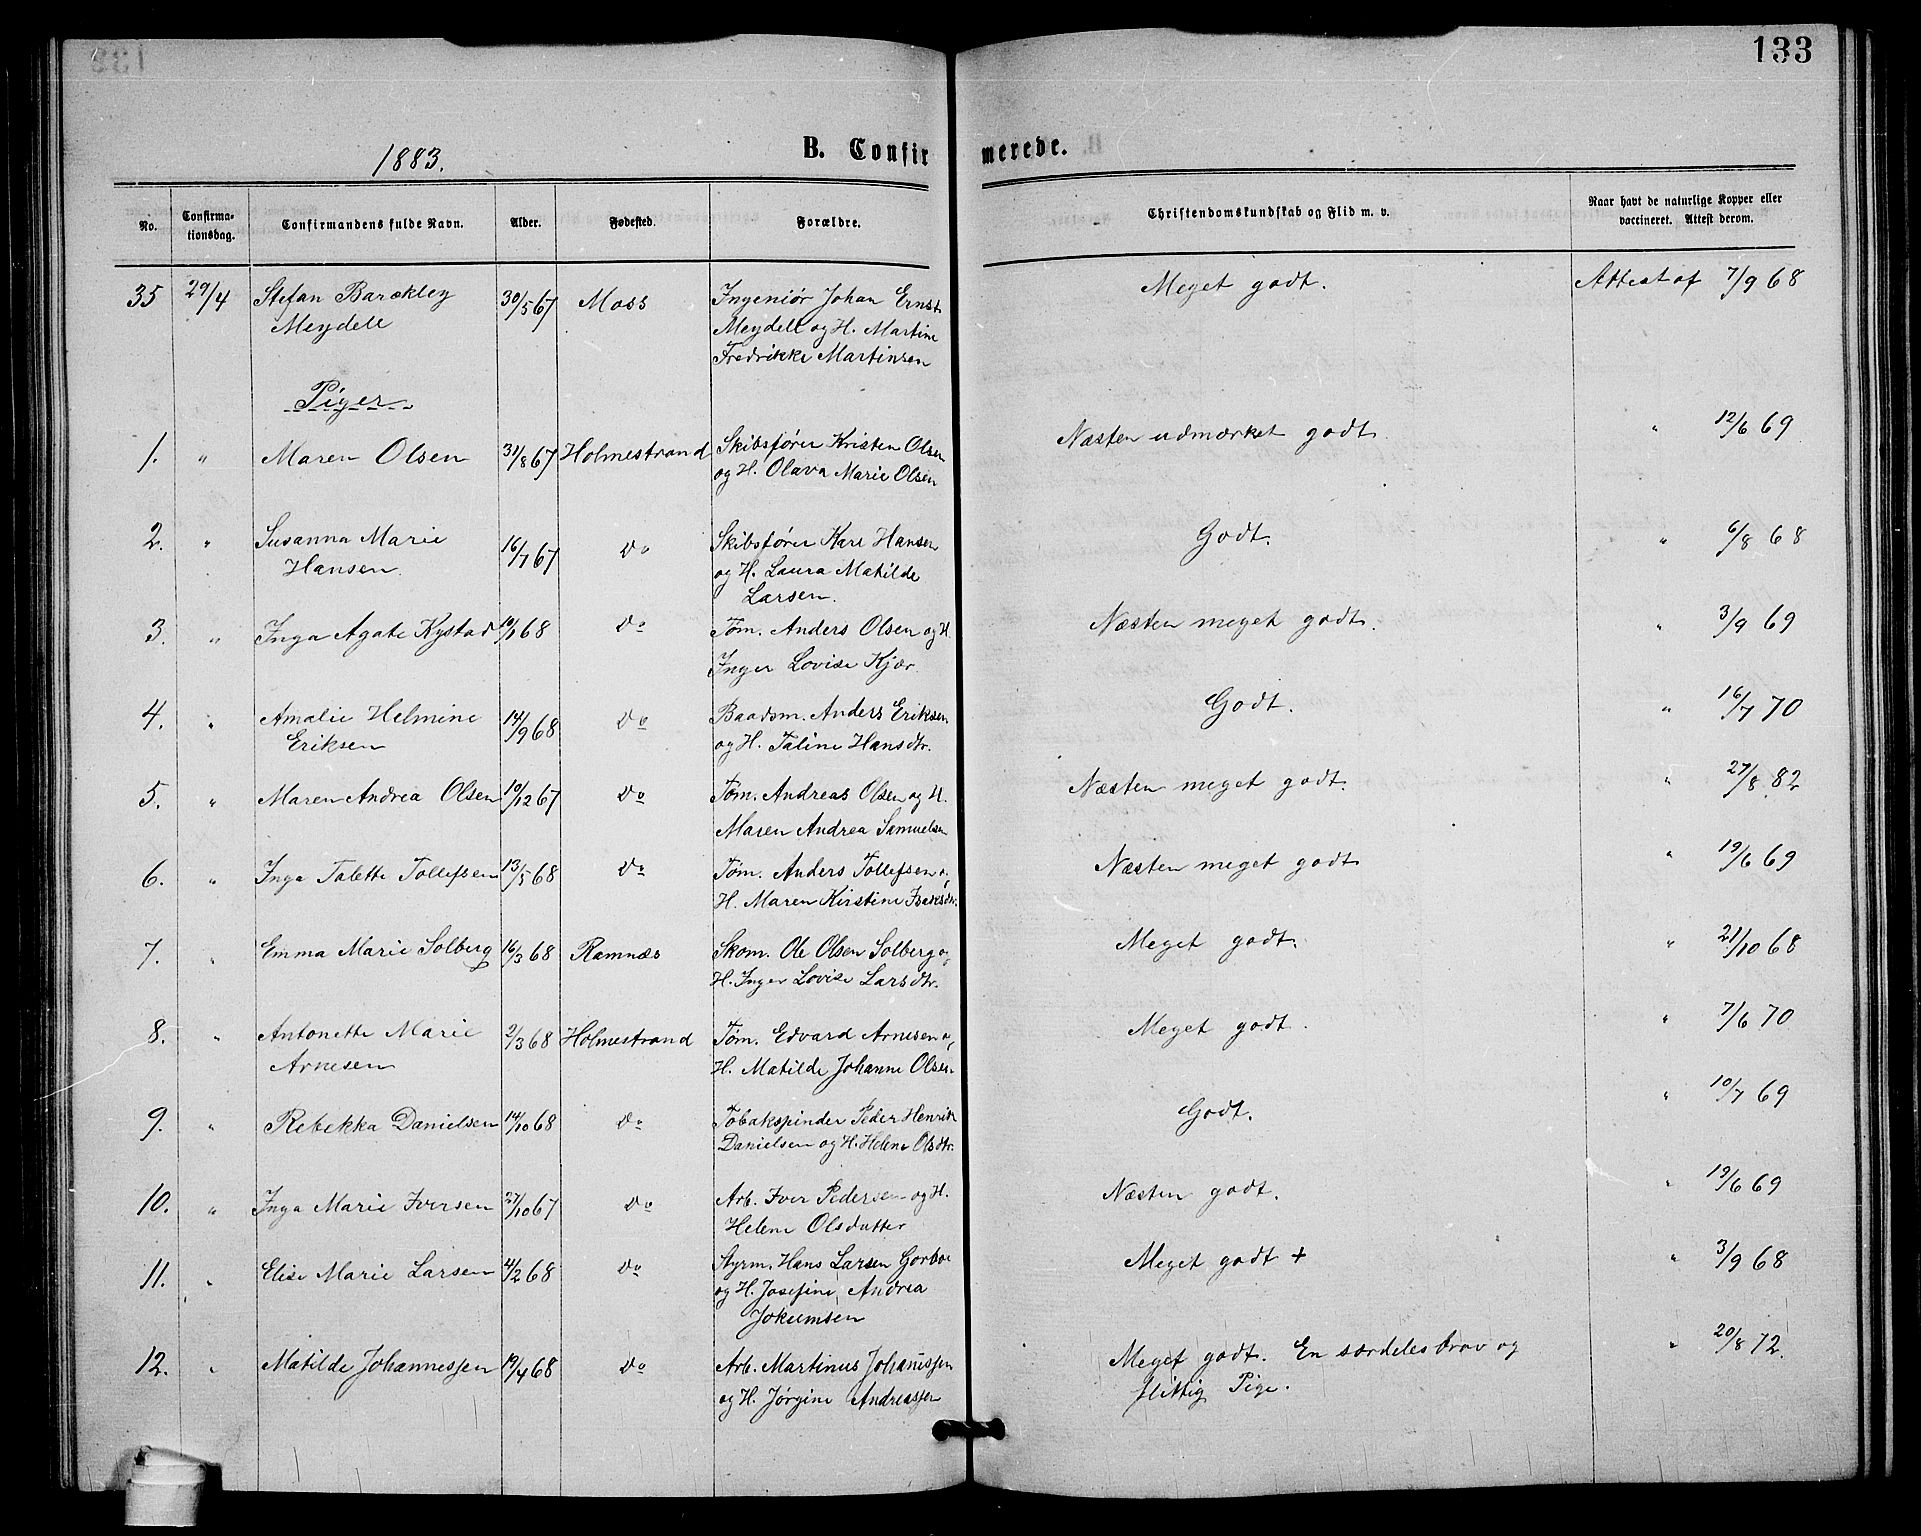 133
1883.
B. Confirmerede.
No. Confirmationsdag. Confirmandens fulde Navn. Alder. Fødested. Forældre. Christendomskundskab og Flid m. v. Naar havt de naturlige Kopper eller vaccineret. Attest derom.
35 29/4 Stefan Barckley 30/5 67 Moss Ingeniør Johan Ernst Meget godt. Attest af 7/9 68
Meydell Meydell og H. Martine
Fredrikke Martinsen
Piger
1. " Maren Olsen 31/8 67 Holmestrand Skibsfører Kristen Olsen Næsten udmærket godt. " 12/6 69
og H. Olava Marie Olsen
2. " Susanna Marie 16/7 67 do Skibsfører Karl Hansen Godt. " 6/8 68
Hansen. og H. Laura Matilde
Larsen.
3. " Inga Agate Kystad 10/1 68 do Tøm. Anders Olsen og H. Næsten meget godt. " 3/9 69
Inger Lovise Kjær
4. " Amalie Helmine 14/9 68 do Baadsm. Anders Eriksen Godt. " 16/7 70
Eriksen og H. Taline Hansdtr.
5. " Maren Andrea Olsen 10/12 67 do Tøm. Andreas Olsen og H. Næsten meget godt. " 27/8 82
Maren Andrea Samuelsen
6. " Inga Talette Tollefsen 13/5 68 do Tøm. Anders Tollefsen og Næsten meget godt " 19/6 69
H. Maren Kirstine Isaksdtr.
7. " Emma Marie Solberg 16/3 68 Ramnæs Skom. Ole Olsen Solberg og Meget godt. " 21/10 68
H. Inger Lovise Larsdtr.
8. " Antonette Marie 2/3 68 Holmestrand Tøm. Edvard Arnesen og Meget godt. " 7/6 70
Arnesen H. Matilde Johanne Olsen
9. " Rebekka Danielsen 14/10 68 do Tobakspinder Peder Henrik Godt. " 10/7 69
Danielsen og H. Helene Olsdtr.
10. " Inga Marie Iversen 27/10 67 do Arb. Iver Pedersen og H. Næsten godt. " 19/6 69
Helene Olsdatter
11. " Elise Marie Larsen 4/2 68 do Styrm. Hans Larsen Gorboe Meget godt + " 3/9 68
og H. Josefine Andrea
Jokumsen
12. " Matilde Johannessen 19/4 68 do Arb. Martinus Johanessen Meget godt. En særdeles brav og " 20/8 72.
og H. Jørgine Andreassen flittig Pige.